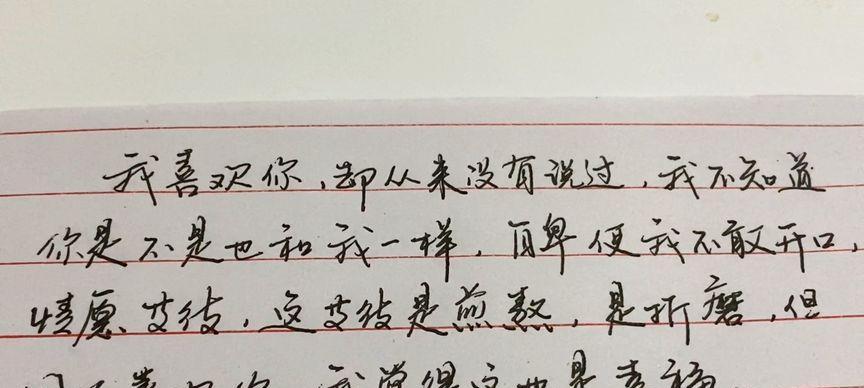 我喜欢你，却从来没有说过，我不知道
你是不是也和我一样，自卑使我不敢开口，
情愿等待，这等待是煎熬，是折磨，但
喜欢你，我觉得这也是幸福